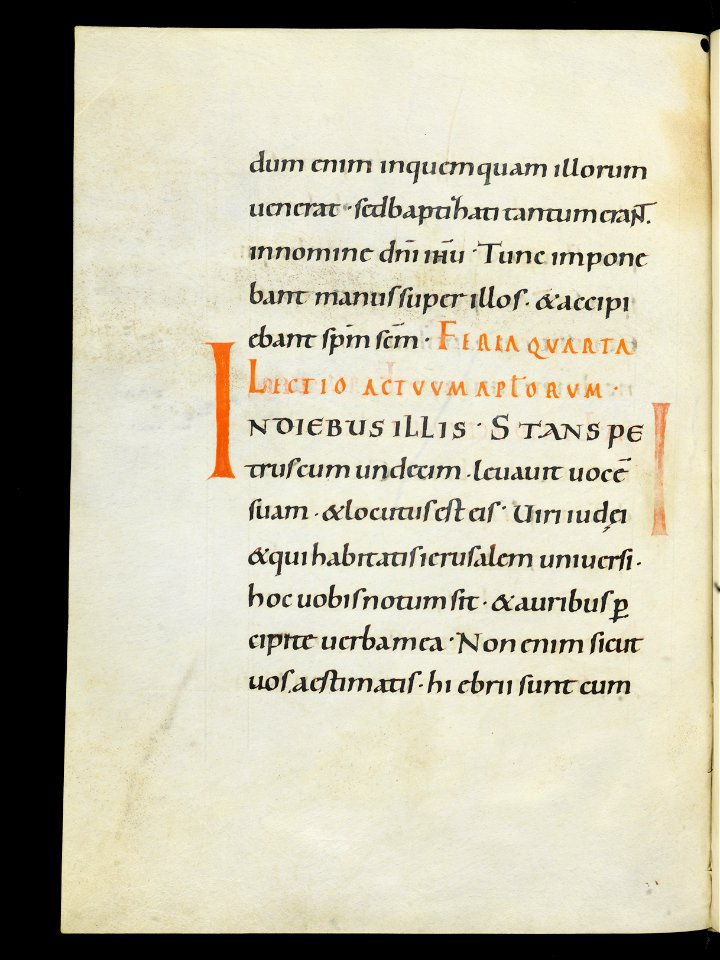 dum enim inquemquam illorum
uenerat · sedbaptihati tantumeraNT.
innomine dn̄i ihū · Tunc impone
bant manus super illos · &accipi
ebant sp̄m sc̄m · FERIA QUARTA
LECTIO ACTUUM APL̄ORUM ·
INDIEBUS ILLIS · STANS PE
truscum undecim · leuauit uocē
suam · &locutusest eis · Uiri iudęi
&qui habitatisierusalem uniuersi ·
hoc uobisnotum sit · &auribus ꝑ
cipite uerbamea · Non enim sicut
uos aestimatis · hi ebrii sunt cum